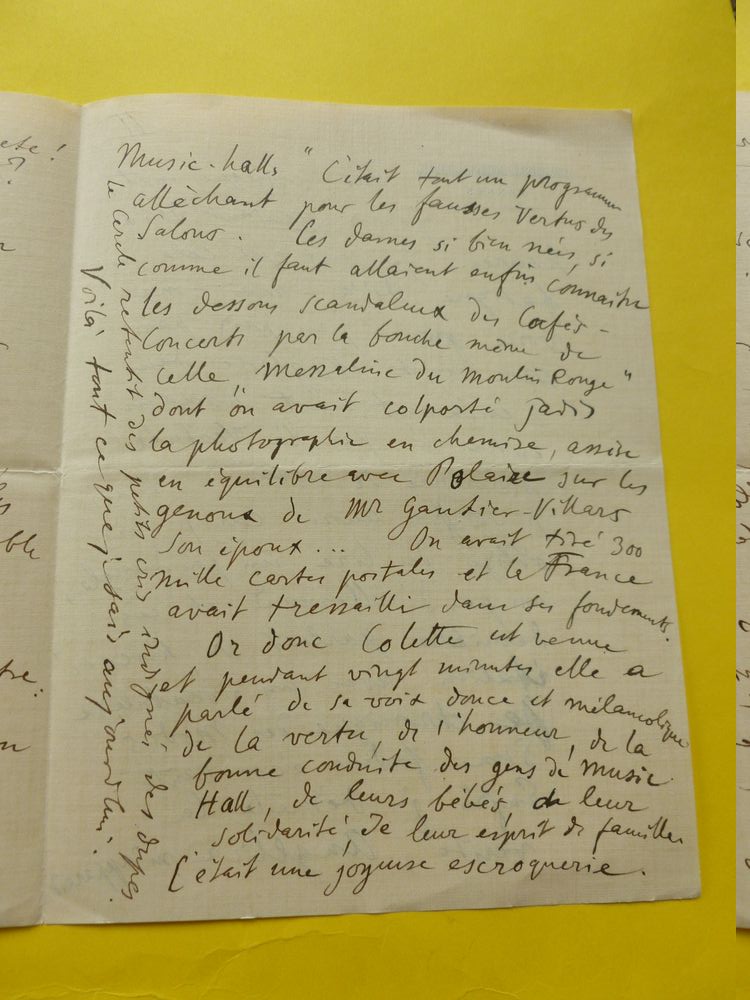 Music-halls " C'était tout un programme
alléchant pour les fausses Vertus des
Salons. Ces dames si bien nées, si
comme il faut allaient enfin connaître
les dessous scandaleux des Cafés-
Concerts par la bouche même de
celle "Messaline du Moulin Rouge"
dont on avait colporté jadis
la photographie en chemise, assise
en équilibre avec Polaire sur les
genoux de Mr Gautier-Villars
son époux... On avait tiré 300
mille cartes postales et la France
avait tressailli dans ses fondements.
Or donc Colette est venue
et pendant vingt minutes elle a
parlé de sa voix douce et mélancolique
de la vertu, de l'honneur, de la
bonne conduite des gens de Music
Hall, de leurs bébés de leur
solidarité, de leur esprit de famille
C'était une joyeuse escroquerie.
le Cercle retentit des petits cris indignés des dupes.
Voilà tout ce que je sais aujourd'hui.
ble